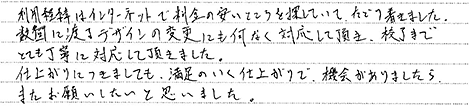 利用経緯はインターネットで料金の安いところを探していて、たどり着きました。
数回に渡るデザインの変更にも何なく対応して頂き、校了まで
とても丁寧に対応して頂きました。
仕上がりにつきましても、満足のいく仕上がりで、機会がありましたら
またお願いしたいと思いました。